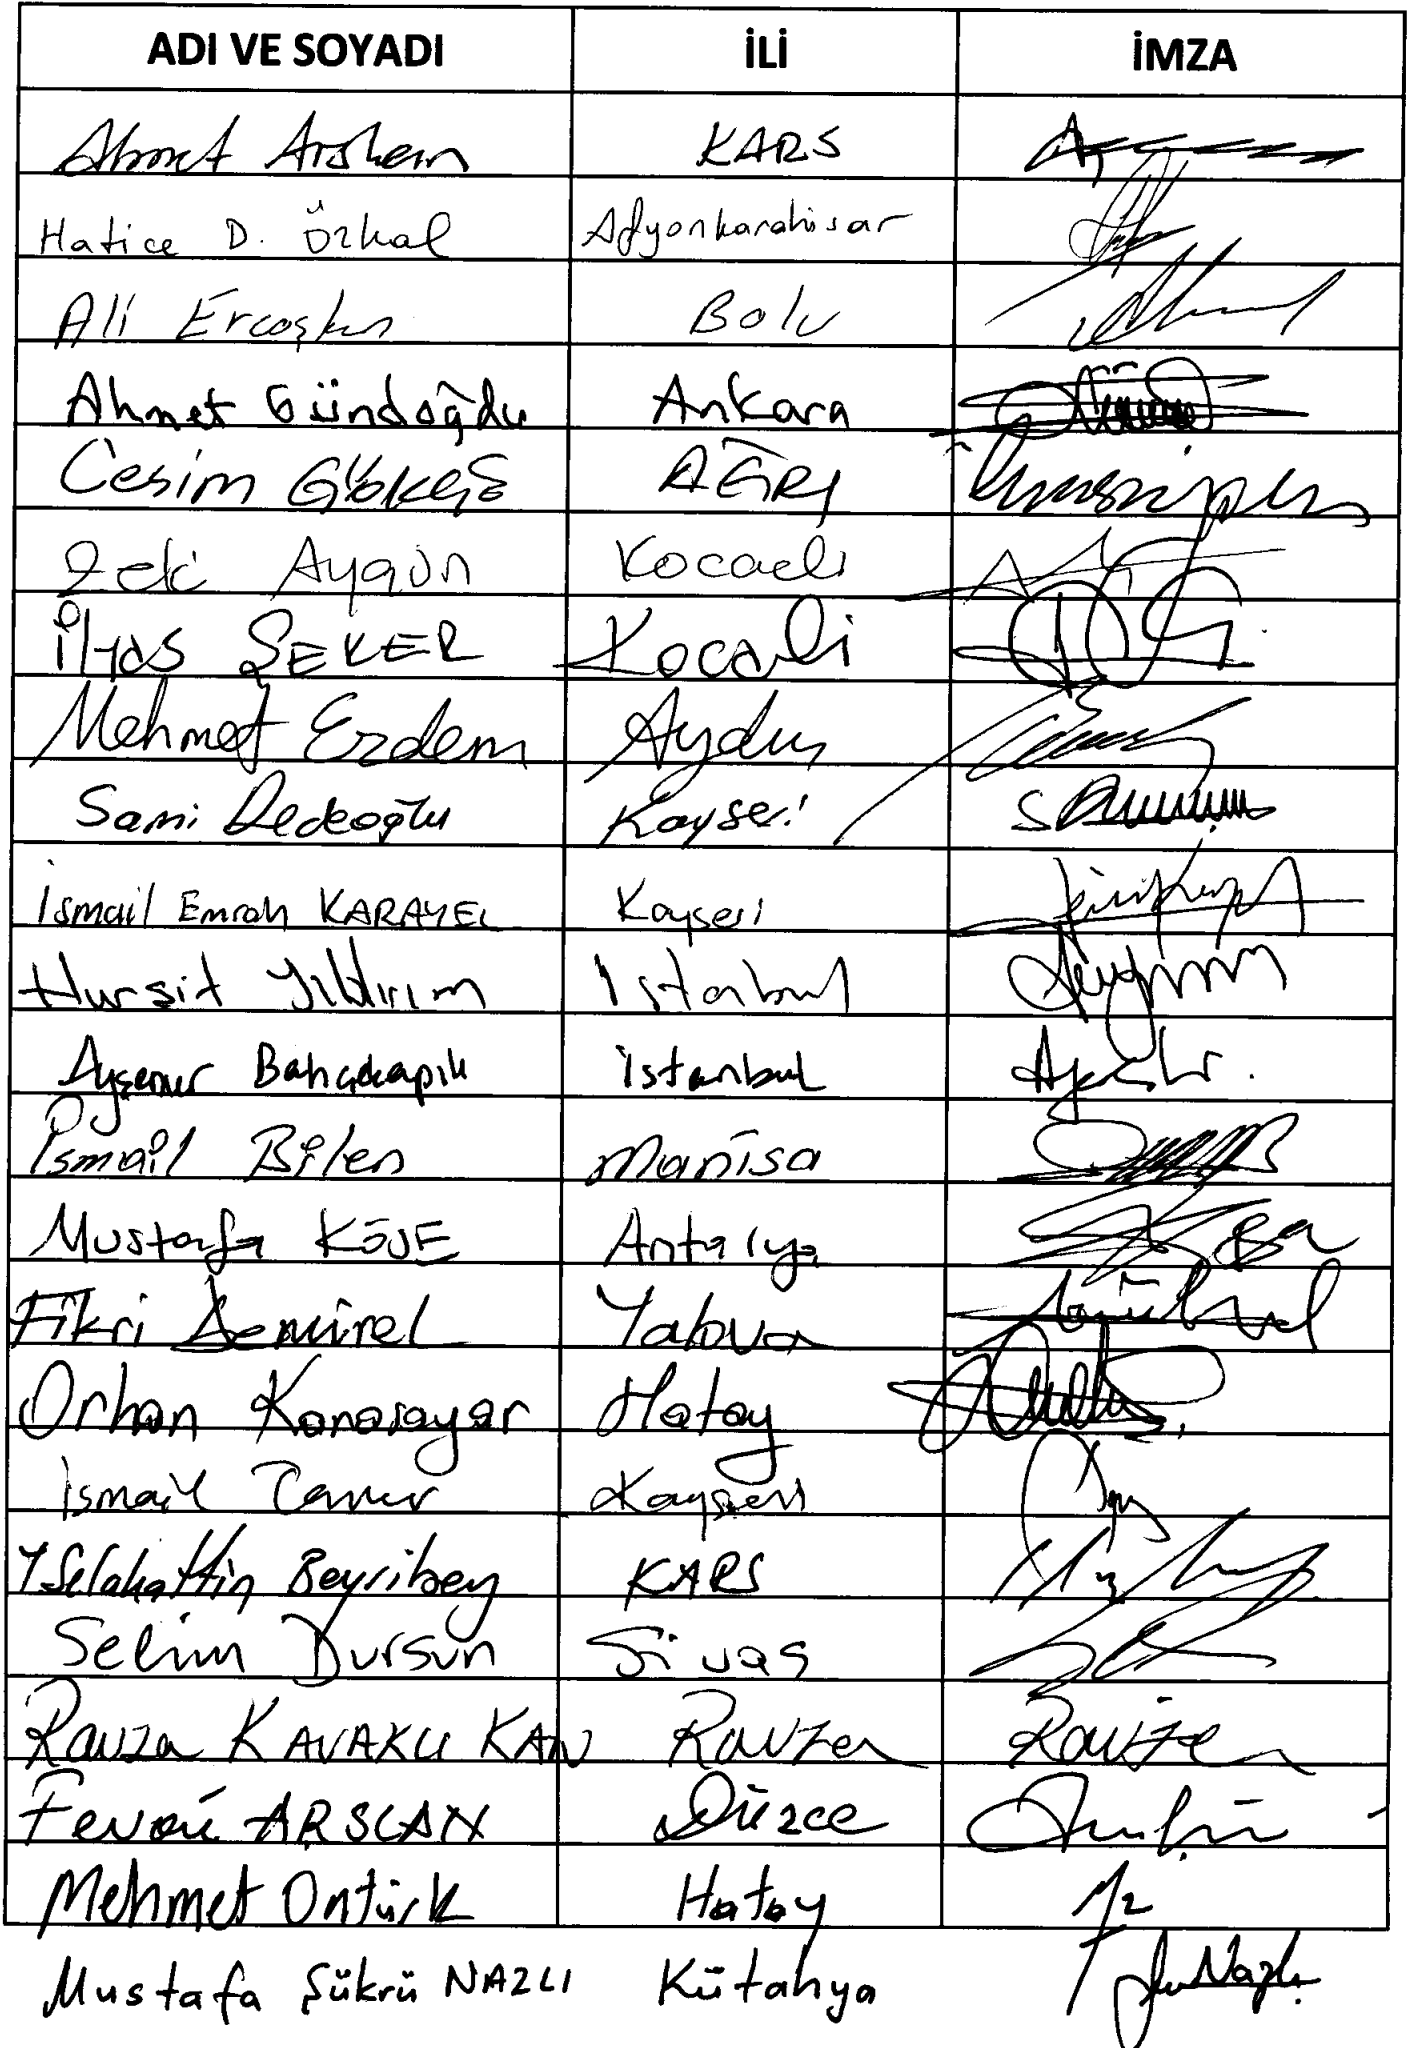 ADI VE SOYADI İLİ İMZA
Ahmet Arslan KARS
Hatice D. Özkal Afyonkarahisar
Ali Ercoşkun Bolu
Ahmet Gündoğdu Ankara
Cesim GÖKÇE AĞRI
Zeki Aygün Kocaeli
İlyas ŞEKER Kocaeli
Mehmet Erdem Aydın
Sami Dedeoğlu Kayseri
İsmail Emrah KARAYEL Kayseri
Hurşit Yıldırım İstanbul
Ayşenur Bahçekapılı İstanbul
İsmail Bilen Manisa
Mustafa KÖSE Antalya
Fikri Demirel Yalova
Orhan Karasayar Hatay
İsmail Tamer Kayseri
Y Selahattin Beyribey KARS
Selim Dursun Sivas
Ravza KAVAKCI KAN Ravza Ravza
Fevai ARSLAN Düzce
Mehmet Öntürk Hatay
Mustafa Şükrü NAZLI Kütahya